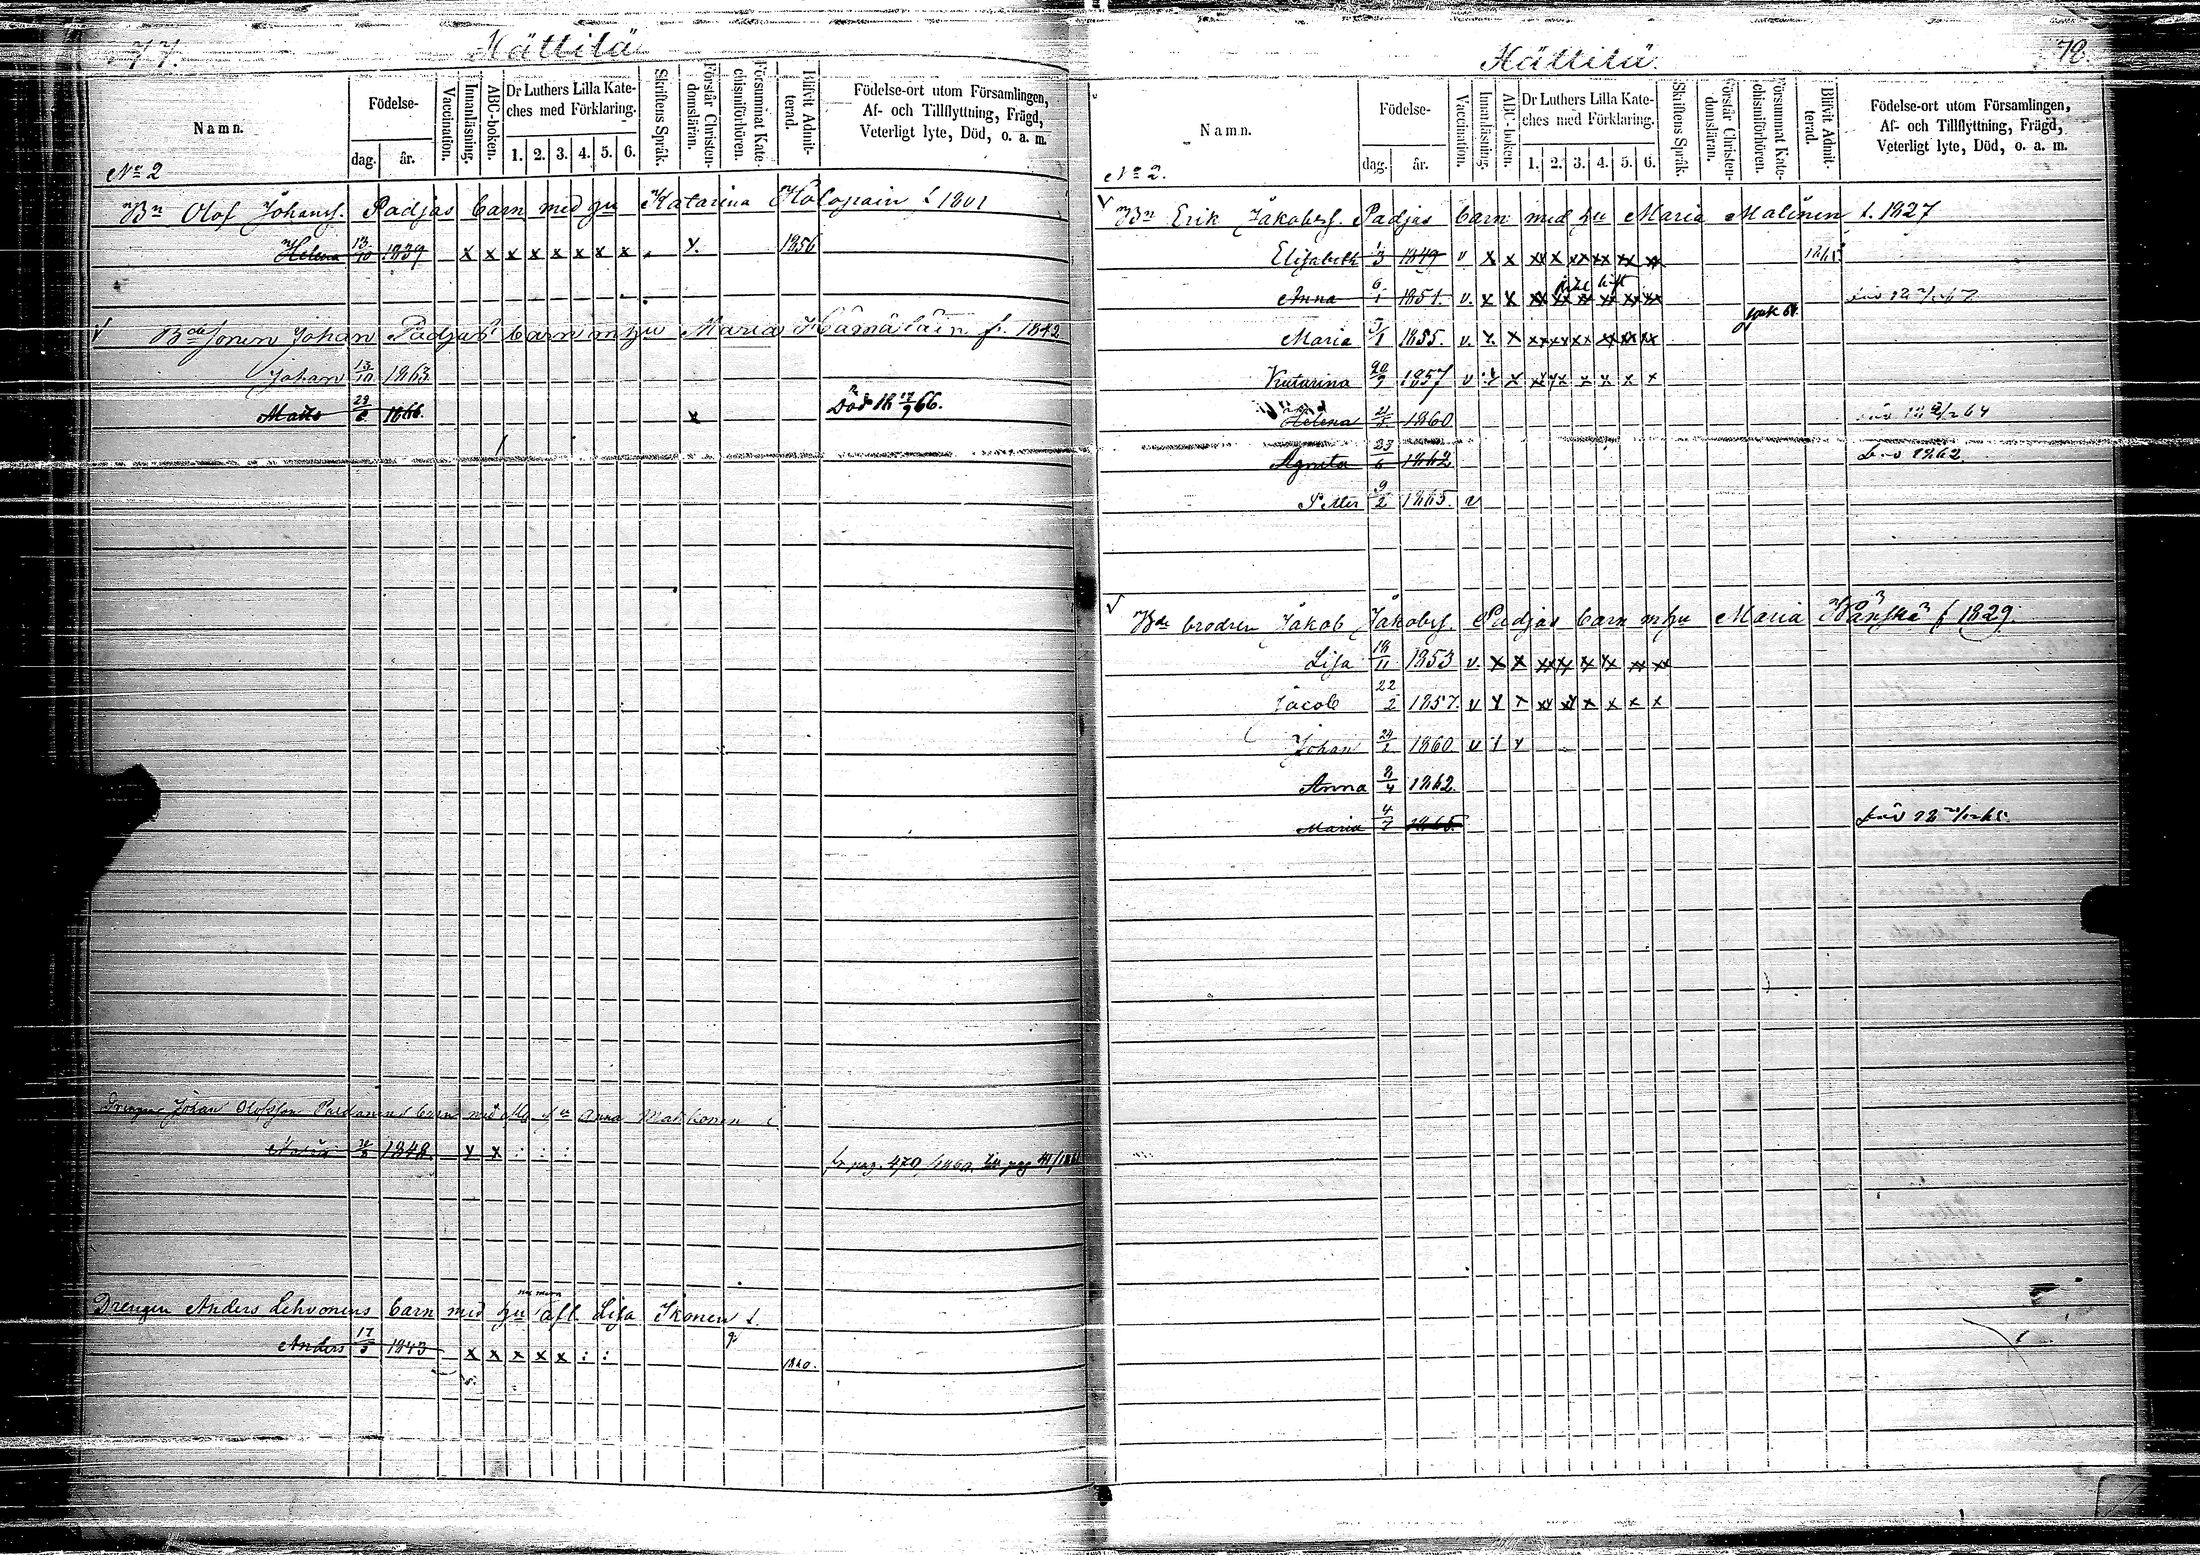 77.
Hättilä
Namn.
Födelse-
dag.
år.
Vaccination.
Innanläsning.
ABC-boken.
Dr Luthers Lilla Kate-
ches med Förklaring.
1. 2. 3. 4. 5. 6.
Skriftens Språk.
Förstår Christen-
domsläran.
Försummat Kate-
chismiförhören.
Blifvit Admit-
terad.
Födelse-ort utom Församlingen,
Af- och Tillflyttning, Frägd,
Veterligt lyte, Död, o. a. m.
No 2
Bn Olof Johansf. Padjas barn med hu Katarina Holopain f 1801
Helena 13/10 1839 x x x x x x x x 1856
Bde sonen Johan Padjas barn m hu Maria Hämäläin f. 1842
Johan 13/10 1863
Matts 29/6 1866. x Död 18 17/9 66.
Johan Olofsson barn med Anna
1848 x x : : :
fr pag. 470
Drengen Anders Lehvonens barn med hu afl. Lisa Ikonen f.
Anders 17/5 1843 x x x x x : :
78.
Hättilä
Namn.
Födelse-
dag.
år.
Vaccination.
Innanläsning.
ABC-boken.
Dr Luthers Lilla Kate-
ches med Förklaring.
1. 2. 3. 4. 5. 6.
Skriftens Språk.
Förstår Christen-
domsläran.
Försummat Kate-
chismiförhören.
Blifvit Admit-
terad.
Födelse-ort utom Församlingen,
Af- och Tillflyttning, Frägd,
Veterligt lyte, Död, o. a. m.
No 2.
Bn Erik Jakobsf. Padjas barn med hu Maria Malinen f. 1827
Elisabeth 1/3 1849 v x x xx x xx xx xx xx
Anna 6/1 1851. v. x x xx xx xx xx xx xx
Maria 5/1 1855. v. x x xx xx xx xx xx xx
Katarina 20/9 1857 v x x xx xx x x x x
Helena 21/5 1860
Agneta 23/6 1862 död 1862.
Petter 9/2 1865. v
Bde brodren Jakob Jakobsf. Padjas barn m hu Maria Wänskä f 1829.
Lisa 18/11 1853 v. x x xx xx xx xx xx xx
Jacob 22/2 1857. v x x xx xx x x x x
Johan 24/1 1860 v
Anna 8/4 1862.
Maria 4/7 1865.